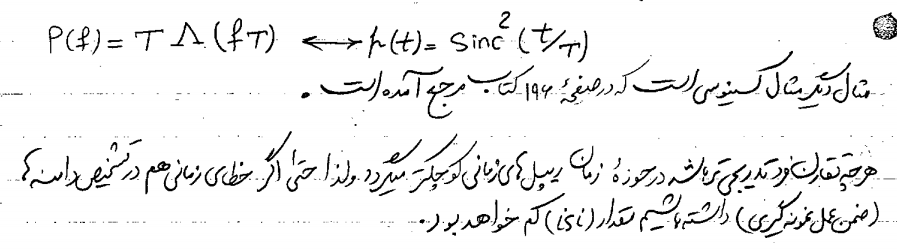 P(f) = T Λ(fT) ⟷ p(t) = Sinc²(t/T)
مثال دیگر مثال کسینوسی است که در صفحهٔ ۱۹۴ کتاب مرجع آمده است .
هرچه تقارن فرد تدریجی‌تر باشد در حوزهٔ زمان ریپل‌های زمانی کوچکتر میگردد ولذا حتی اگر خطای زمانی هم در تشخیص دامنه‌ها
(ضمن عمل نمونه‌گیری) داشته باشیم مقدار (ISI) کم خواهد بود.